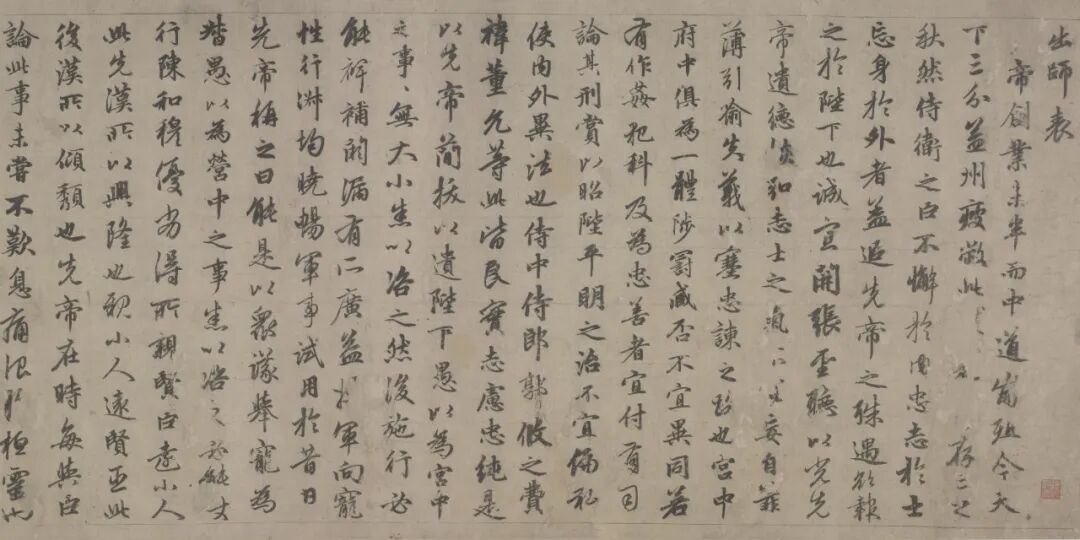 出師表
帝創業未半而中道崩殂今天
下三分益州疲敝此存亡之
秋然侍衛之臣不懈於內忠志於士
忘身於外者蓋追先帝之殊遇欲報
之於陛下也誠宜開張聖聽以光先
帝遺德恢弘志士之氣不宜妄自菲
薄引喻失義以塞忠諫之路也宮中
府中俱為一體陟罰臧否不宜異同若
有作姦犯科及為忠善者宜付有司
論其刑賞以昭陛平明之治不宜偏私
使內外異法也侍中侍郎郭攸之費
禕董允等此皆良實志慮忠純是
以先帝簡拔以遺陛下愚以為宮中
之事無大小悉以咨之然後施行必
能裨補闕漏有所廣益將軍向寵
性行淑均曉暢軍事試用於昔日
先帝稱之曰能是以衆議舉寵為
督愚以為營中之事悉以咨之必能使
行陳和穆優劣得所親賢臣遠小人
此先漢所以興隆也親小人遠賢臣此
後漢所以傾頹也先帝在時每與臣
論此事未嘗不歎息痛恨於桓靈也